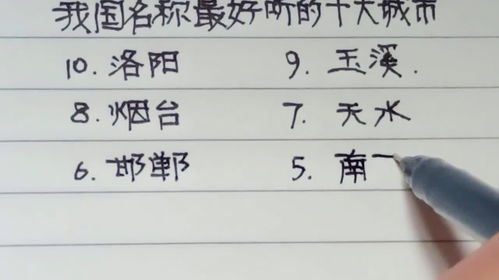 我国名称最好听的十大城市
10. 洛阳 9. 玉溪.
8. 烟台 7. 天水
6. 邯郸 5. 南